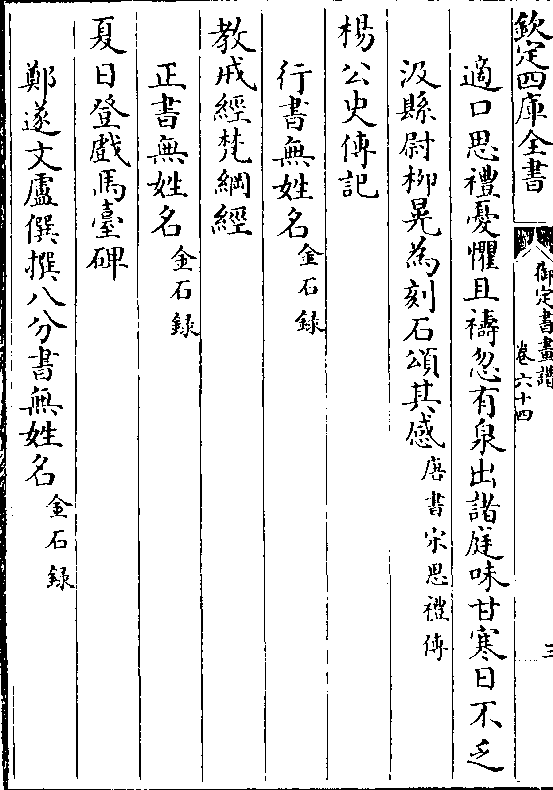 欽定四庫全書
御定書畫譜
卷六十四
三
適口思禮憂懼且禱忽有泉出諸庭味甘寒日不乏
汲縣尉柳晃為刻石頌其感唐書宋思禮傳
楊公史傳記
行書無姓名金石録
教戒經梵綱經
正書無姓名金石録
夏日登戲馬臺碑
鄭遂文盧僎撰八分書無姓名金石録